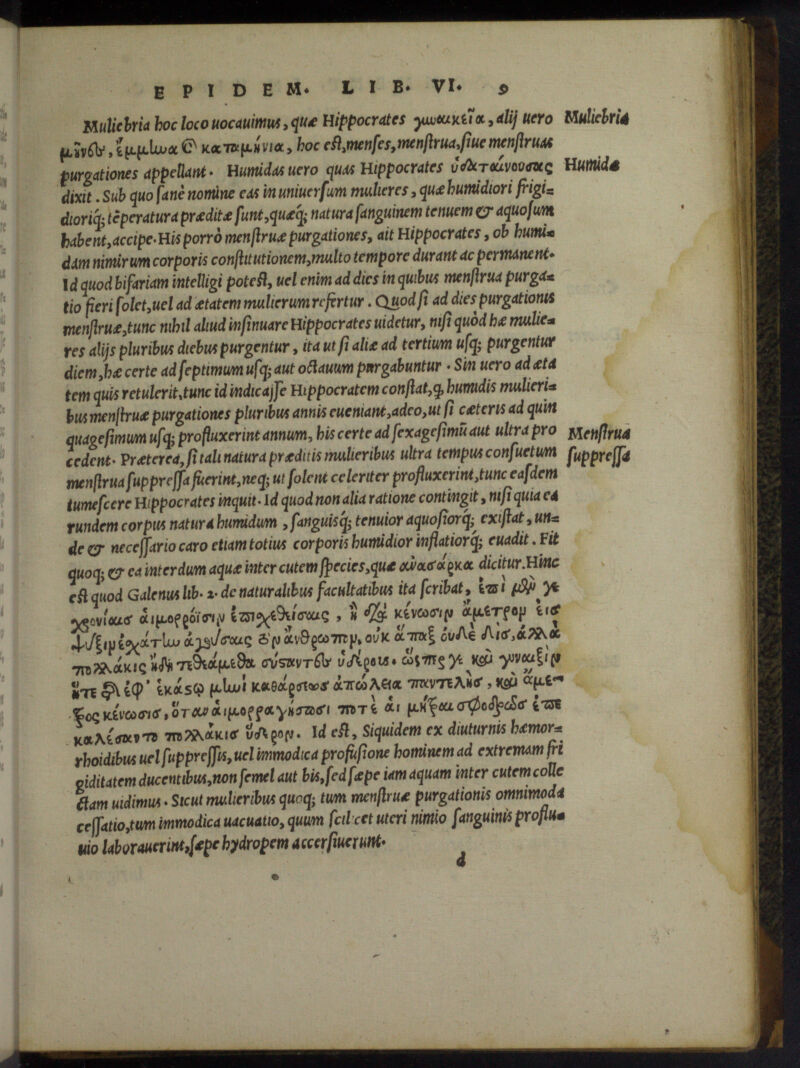 EPIDEM. LIB. VI. 9
Muliebria hoc loco uocauimus, quæ Hippocrates γυναικεῖα, alij uero Muliebria
ἔμμηνα & καταμήνια, hoc est, menses, menstrua, siue menstruas
purgationes appellant. Humidas uero quas Hippocrates ὑδαταινούσας Humidæ
dixit. Sub quo sanè nomine eas in uniuersum mulieres, quæ humidiori frigi=
dioriq; tẽperatura prædita sunt, quæq; natura sanguinem tenuem & aquosum
habent, accipe. His porrò menstruæ purgationes, ait Hippocrates, ob humi=
dam nimirum corporis constitutionem, multo tempore durant ac permanent.
Id quod bifariam intelligi potest, uel enim ad dies in quibus menstrua purga=
tio fieri solet, uel ad ætatem mulierum refertur. Quod si ad dies purgationis
menstruæ, tunc nihil aliud insinuare Hippocrates uidetur, nisi quòd hæ mulie=
res alijs pluribus diebus purgentur, ita ut si aliæ ad tertium usq; purgentur
diem, hæ certe ad septimum usq; aut octauum purgabuntur. Sin uero ad æta
tem quis retulerit, tunc id indicasse Hippocratem constat, ꝙ humidis mulieri=
bus menstruæ purgationes pluribus annis eueniant, adeo, ut si cæteris ad quin
quagesimum usq; profluxerint annum, his certe ad sexagesimũ aut ultra pro Menstrua
cedent. Præterea, si tali natura præditis mulieribus ultra tempus consuetum suppressa
menstrua suppressa fuerint, neq; ut solent celeriter profluxerint, tunc easdem
tumescere Hippocrates inquit. Id quod non alia ratione contingit, nisi quia ea
rundem corpus natura humidum, sanguisq; tenuior aquosiorq; existat, un=
de & necessario caro etiam totius corporis humidior inflatiorq; euadit. Fit
quoq; & ea interdum aquæ inter cutem species, quæ ἀνασάρκα dicitur. Hinc
est quod Galenus lib. 2. de naturalibus facultatibus ita scribat, ἐπὶ μὲν γε
χρονίαις αἱμορροΐσιν ἐπισχεθείσαις, ἢ διὰ κένωσιν ἄμετρον εἰς
ψύξιν ἐσχάτην ἀγούσαις τὸν ἄνθρωπον, οὐκ ἅπαξ οὐδὲ δὶς, ἀλλὰ
πολλάκις ἤδη τεθεάμεθα συστάντα ὕδρους. ὥσπερ γε καὶ γυναιξὶν
ἥτε τῆς ἐφ᾽ ἑκάστῳ μηνὶ καθάρσεως ἀπώλεια παντελὴς, καὶ ἄμε-
τρος κένωσις, ὅταν αἱμορραγήσωσί ποτε αἱ μῆτραι σφοδρῶς ἐπε
καλέσαντο πολλάκις ὕδερον. Id est, Siquidem ex diuturnis hæmor=
rhoidibus uel suppressis, uel immodica profusione hominem ad extremam fri
giditatem ducentibus, non semel aut bis, sed sæpe iam aquam inter cutem colle
ctam uidimus. Sicut mulieribus quoq; tum menstruæ purgationis omnimoda
cessatio, tum immodica uacuatio, quum scilicet uteri nimio sanguinis proflu=
uio laborauerint, sæpe hydropem accersiuerunt.
d